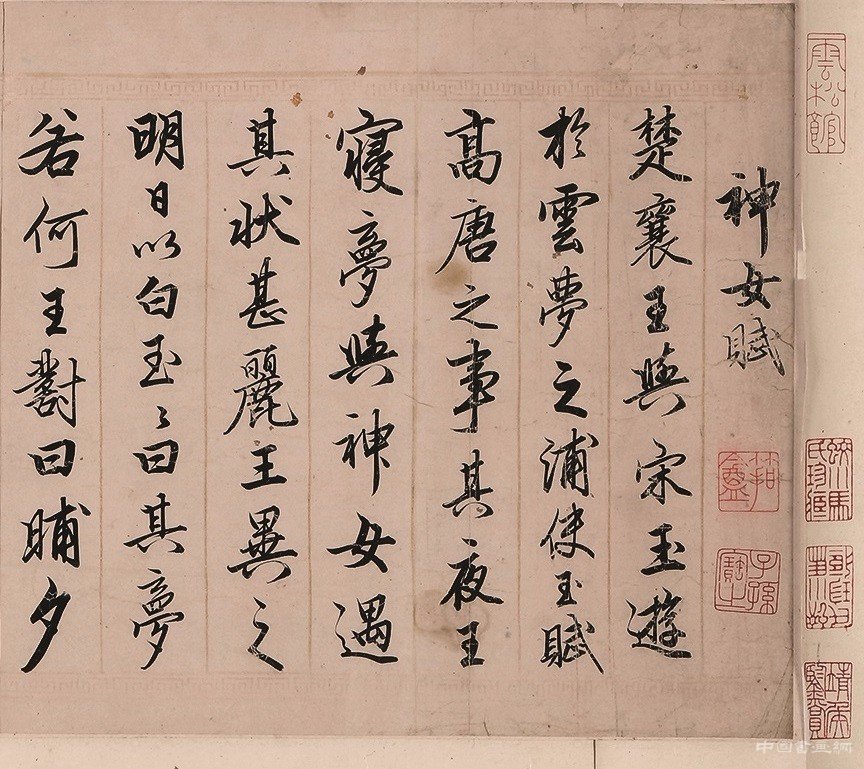 神女賦
楚襄王與宋玉遊
於雲夢之浦使玉賦
高唐之事其夜王
寑夢與神女遇
其狀甚麗王異之
明日以白玉〻曰其夢
若何王對曰晡夕
雲松館
子孫寶之
中国書画網